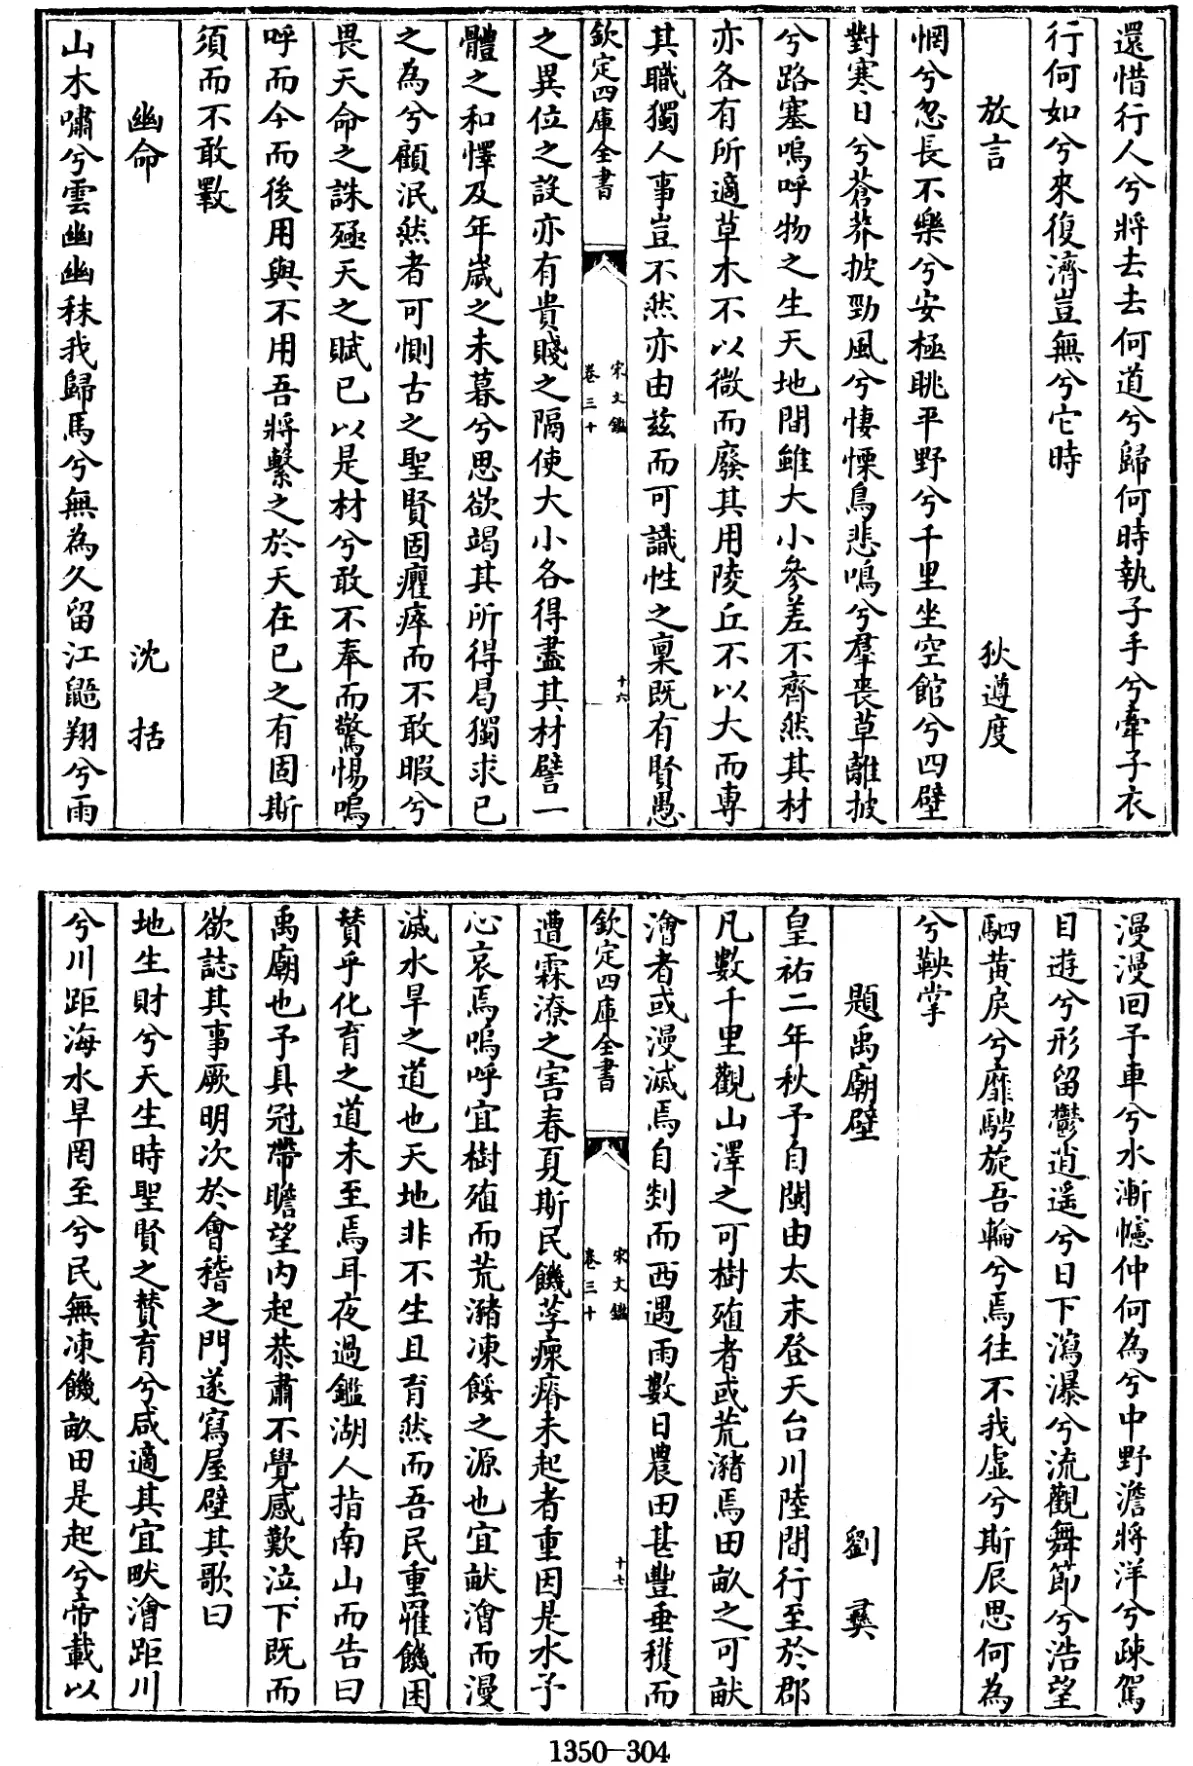 還惜行人兮將去去何道兮歸何時執子手兮牽子衣
行何如兮來復濟豈無兮它時
放言 狄遵度
惘兮忽長不樂兮安極眺平野兮千里坐空館兮四壁
對寒日兮蒼莽披勁風兮悽慄鳥悲鳴兮羣喪草離披
兮路塞嗚呼物之生天地間雖大小參差不齊然其材
亦各有所適草木不以微而廢其用陵丘不以大而專
其職獨人事豈不然亦由兹而可識性之稟既有賢愚
欽定四庫全書 宋文鑑 卷三十 十六
之異位之設亦有貴賤之隔使大小各得盡其材譬一
體之和懌及年嵗之未暮兮思欲竭其所得曷獨求已
之為兮顧泯然者可惻古之聖賢固癯瘁而不敢暇兮
畏天命之誅殛天之賦已以是材兮敢不奉而驚惕嗚
呼而今而後用與不用吾將繫之於天在已之有固斯
須而不敢斁
幽命 沈括
山木嘯兮雲幽幽秣我歸馬兮無為久留江鼯翔兮雨
漫漫囘予車兮水漸幰仲何為兮中野澹將洋兮疎駕
目遊兮形留鬱逍遥兮日下瀉瀑兮流觀舞節兮浩望
駟黄戾兮靡騁旋吾輪兮焉往不我虚兮斯辰思何為
兮鞅掌
題禹廟壁 劉彞
皇祐二年秋予自閩由太末登天台川陸間行至於郡
凡數千里觀山澤之可樹殖者或荒瀦焉田畝之可畎
澮者或漫滅焉自剡而西遇雨數日農田甚豐垂穫而
欽定四庫全書 宋文鑑 卷三十 十七
遭霖潦之害春夏斯民饑莩瘝瘠未起者重因是水予
心哀焉嗚呼宜樹殖而荒瀦凍餒之源也宜畎澮而漫
滅水旱之道也天地非不生且育然而吾民重罹饑困
賛乎化育之道未至焉耳夜過鑑湖人指南山而告曰
禹廟也予具冠帶瞻望内起恭肅不覺感歎泣下既而
欲誌其事厥明次於會稽之門遂寫屋壁其歌曰
地生財兮天生時聖賢之賛育兮咸適其宜畎澮距川
兮川距海水旱罔至兮民無凍饑畝田是起兮帝載以
1350—304